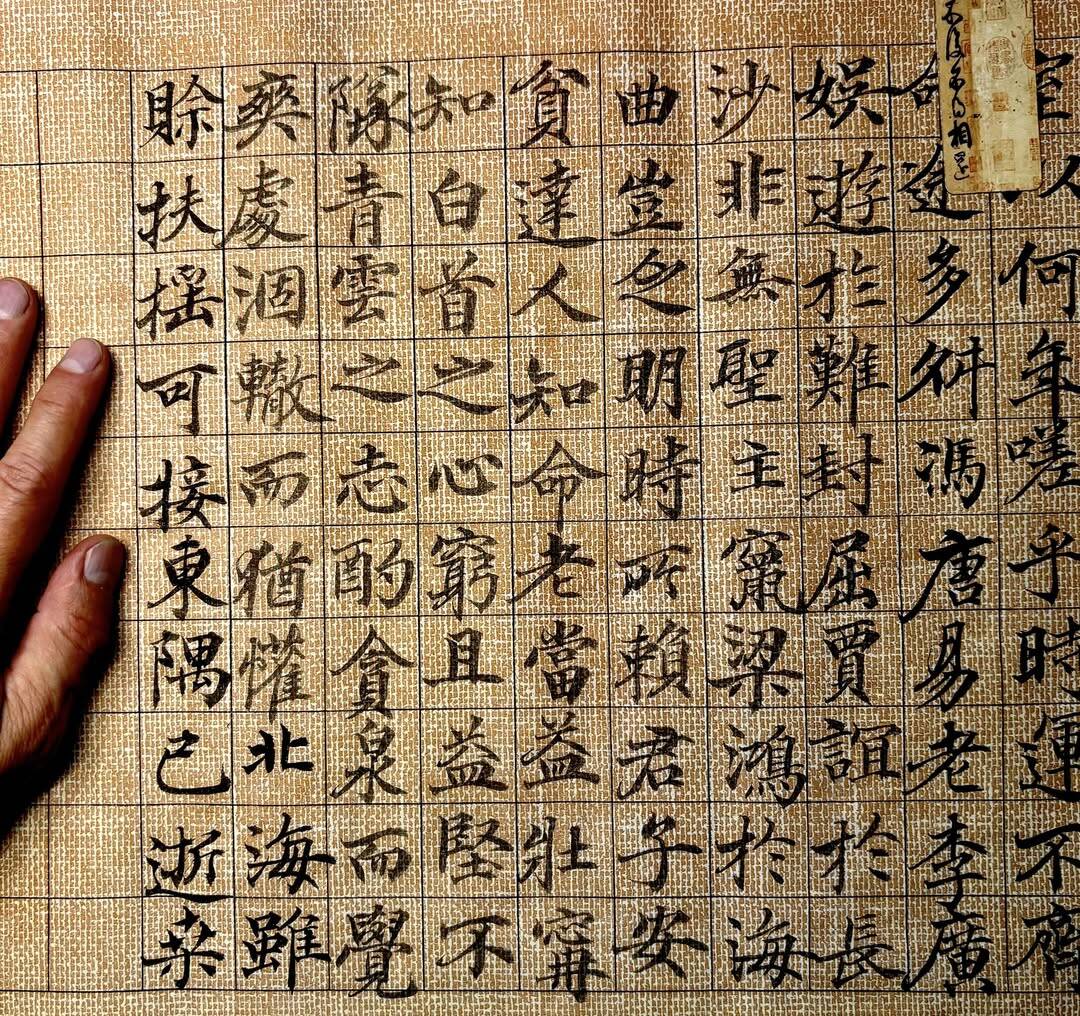 室以何年嗟乎時運不齊
命途多舛馮唐易老李廣
娛遊於難封屈賈誼於長
沙非無聖主竄梁鴻於海
曲豈乏明時所賴君子安
貧達人知命老當益壯寧
知白首之心窮且益堅不
隊青雲之志酌貪泉而覺
爽處涸轍而猶懽北海雖
賒扶搖可接東隅已逝桑